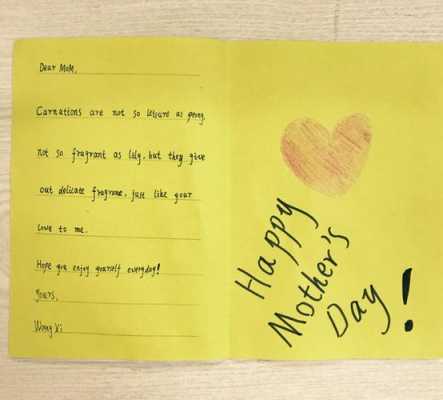 Dear Mom,
Carnations are not so leisure as peony,
not so fragrant as lily, but they give
out delicate fragrance, just like your
love to me.
Hope you enjoy yourself everyday!
Yours,
Happy
Mother's
Day!